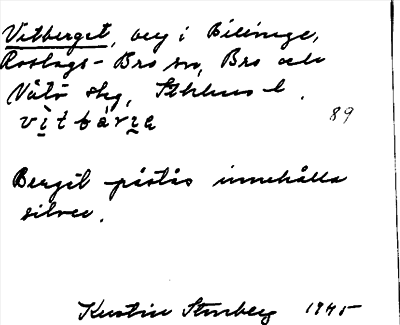 Vitberget, berg i Billinge,
Roslags-Bro sn, Bro och
Vätö slg, Sthlms l.
vìtbárjɛ 89
Berget påstås innehålla
silver.
Kerstin Stenberg 1945